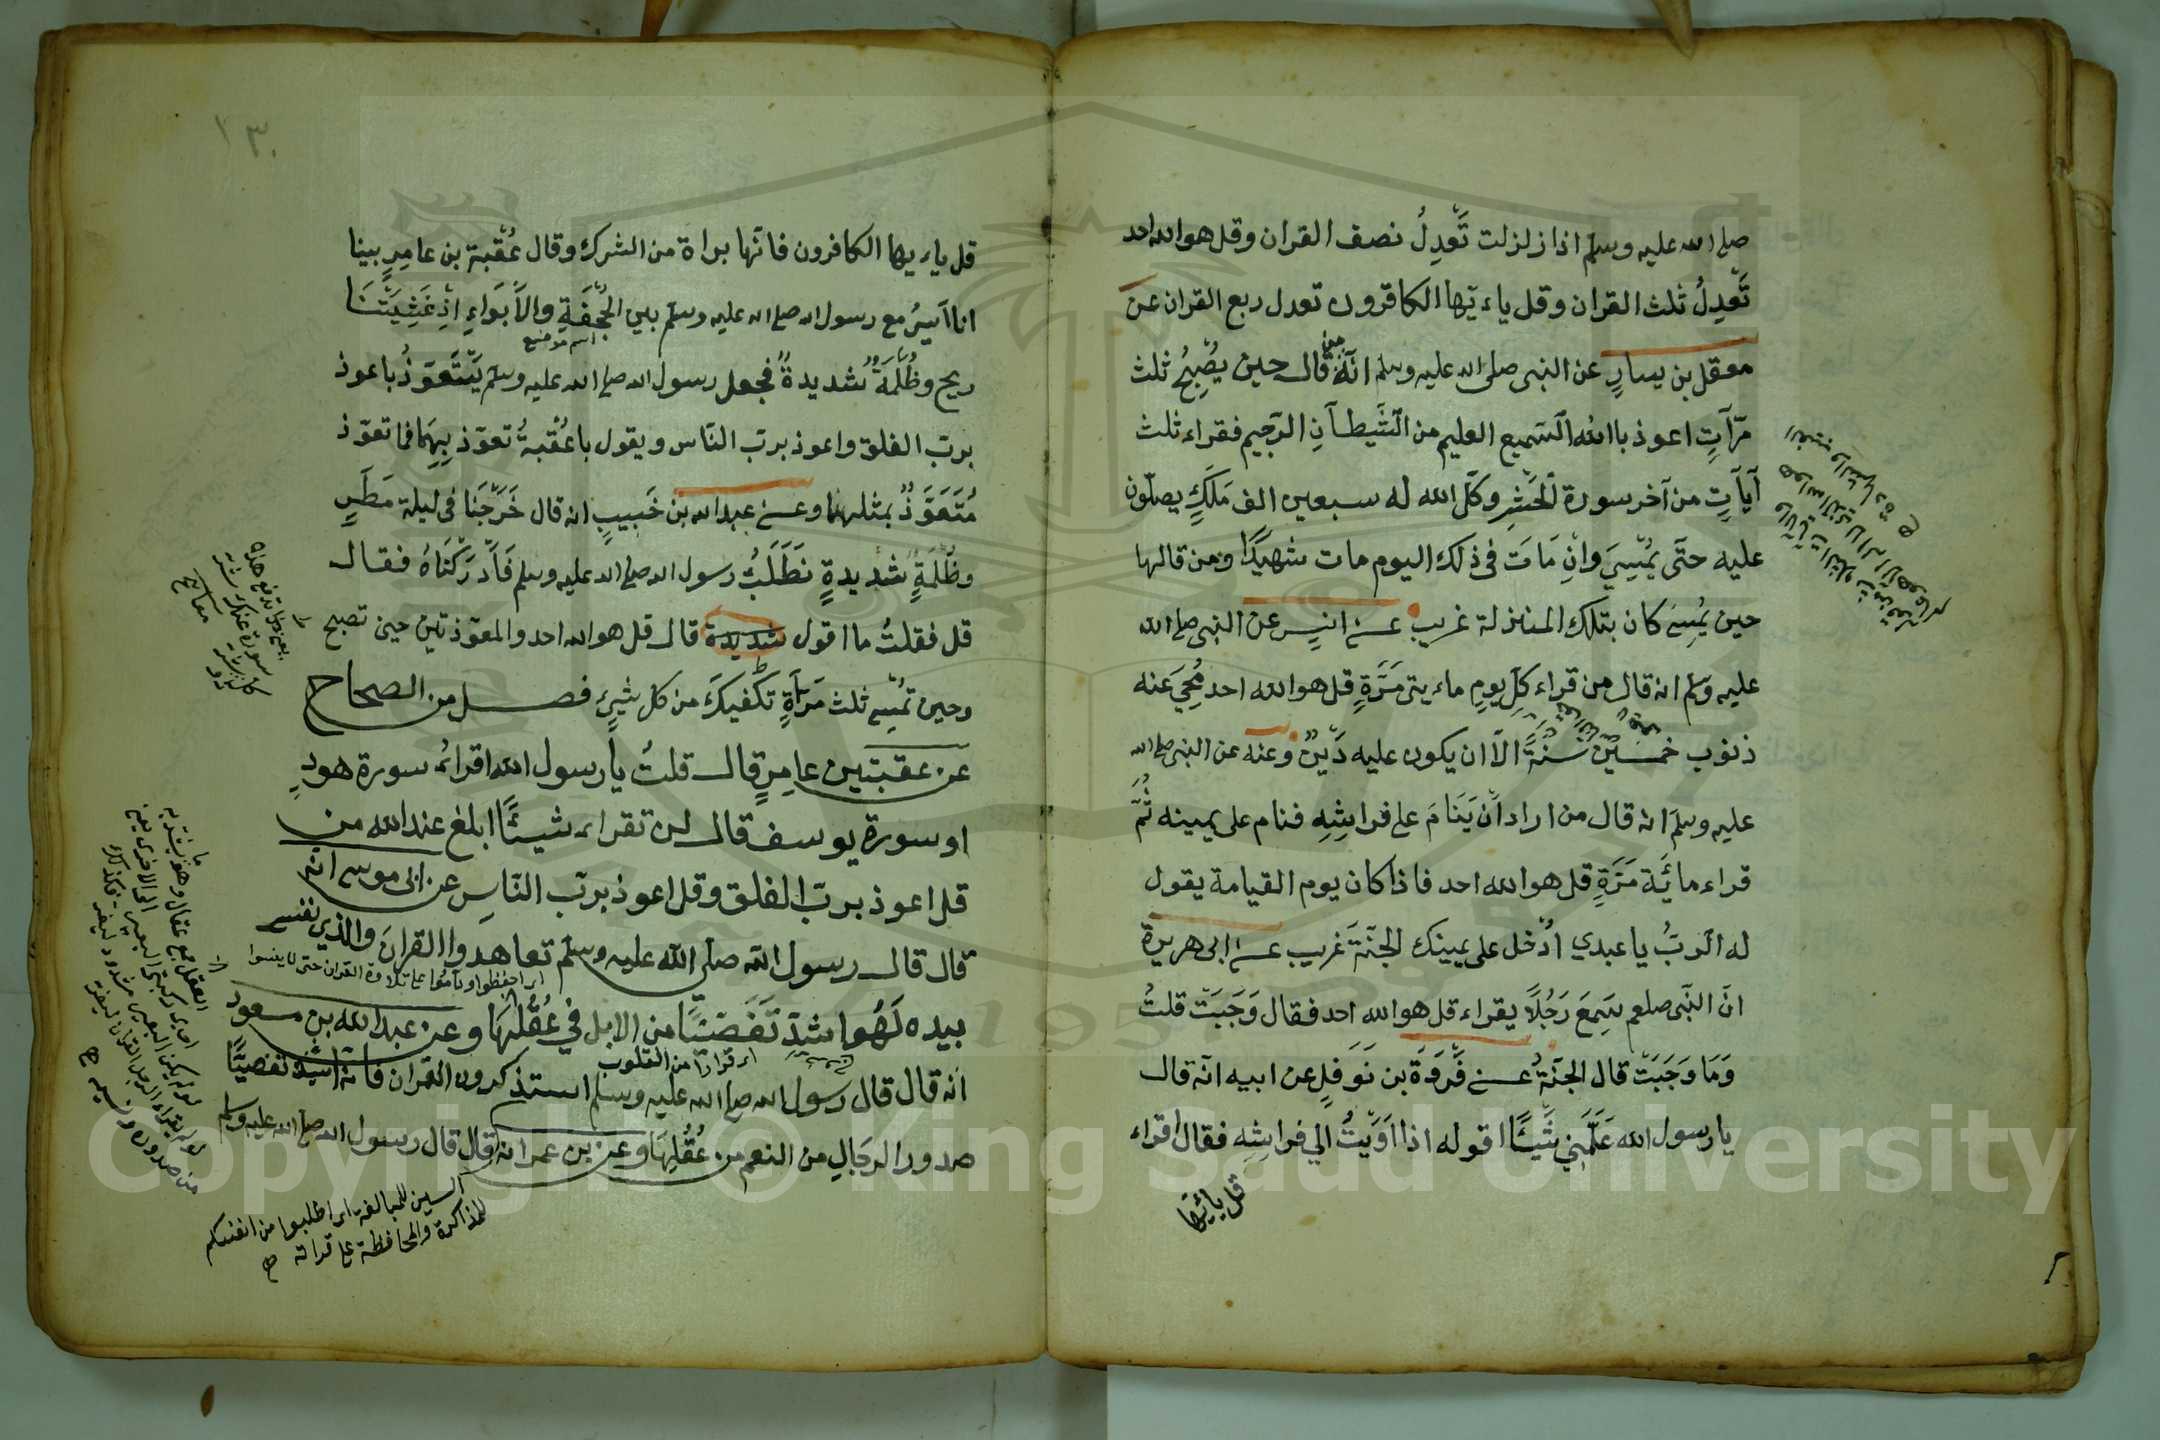 صلى الله عليه وسلم اذا زلزلت تَعْدِلُ نصف القران وقل هو الله احد
تَعْدِلُ ثلث القران وقل ياءيّها الكافرون تعدل ربع القران عن
معقل بن يسارٍ عن النبى صلى الله عليه وسلم انّهُ قال حين يُصْبِحُ ثلث
مرّاتٍ اعوذ باالله السّميع العليم من الشّيطانِ الرّجيم فقراء ثلث
آياتٍ من آخر سورة الحَشْرِ وكّل الله له سبعين الف مَلَكٍ يصلّون
عليه حتّى يُمْسِيَ وانْ مَاتَ فى ذلك اليوم مات شهيدًا ومن قالها
حين يُمْسِى كان بتلك المنزلة غريب عن انسٍ عن النبى صلى الله
عليه وسلم انه قال من قراء كلّ يومٍ ماءيتى مَرَّةٍ قل هو الله احد مُحِيَ عنه
ذنوب خمسين سَنَةً الاّ ان يكون عليه دَيْنٌ وعنه عن النبى صلى الله
عليه وسلّم انه قال من اراد انْ يَنَامَ على فراشِهِ فنام على يمينه ثُمَّ
قراء مائَة مَرَّةٍ قل هو الله احد فاذا كان يوم القيامة يقول
له الرّبُّ يا عبدي ادْخل على يمينك الجنّةَ غريب عن ابى هريرة
انّ النّبى صلعم سَمِعَ رَجُلًا يقراء قل هو الله احد فقال وَجَبَتْ قلتُ
وَمَا وَجَبَتْ قال الجنّةُ عن فَرْوَةَ بن نَوْفَلٍ عن ابيه انّه قال
يا رسول الله عَلِّمْنِي شَيْئًا اقوله اذا اَوَيْتُ الي فراشِهِ فقال اقراء
قل يا ايّها
١٣٠
قل ياءيها الكافرون فانّها براة من الشرك وقال عُقْبة بن عامِرٍ بينا
انا اَسِيرُ مع رسول الله صلى الله عليه وسلم بين الجُحْفَةِ والاَبْوَاءِ اذْ غَشِيَتْنَا
اسم موضع
ريح وظُلْمَةٌ شديدةٌ فجعل رسول الله صلى الله عليه وسلم يَتَعَوّذُ باعوذ
بربّ الفلق واعوذ بربّ النّاس ويقول يا عُقْبةُ تعوّذ بِهِمَا فما تعوّذ
مُتَعَوِّذٌ بمثلهما وعن عبد الله بن خَبِيبٍ انه قال خَرَجْنَا فى ليلة مَطَرٍ
وظُلْمَةٍ شديدةٍ نَطْلُبُ رسول الله صلى الله عليه وسلم فَاَدْرَكْنَاهُ فقال
قل فقلتُ ما اقول شديدة قال قل هو الله احد والمعوّذتين حين تصبح
وحين تمْسِى ثلث مَرّاةٍ تكْفيكَ من كل شيئٍ فصل من الصحاح
عن عقبة بن عامِرٍ قال قلتُ يا رسول الله اقراءُ سورة هودٍ
او سورة يوسف قال لن تقراء شيئًا ابلغ عند الله من
قل اعوذ بربّ الفلق وقل اعوذ بربّ النّاسِ عن ابى موسى انّه
قال قال رسول الله صلّى الله عليه وسلّم تعاهدوا القرانَ والذي نفسى
بيده لَهُوَ اشدّ تَفَصّيًا من الابل في عُقُلِهَا وعن عبد الله بن مسعود
انّه قال قال رسول الله صلى الله عليه وسلم استذكروا القران فانّه اشدّ تفصيًّا
صدور الرجال من النعم من عُقُلِهَا وعن بن عمر انه قال قال رسول الله صلى الله عليه وسلم
السين للمبالغة اى اطلبوا من انفسكم
المذاكرة والمحافظة على قراته
Copyright © King Saud University